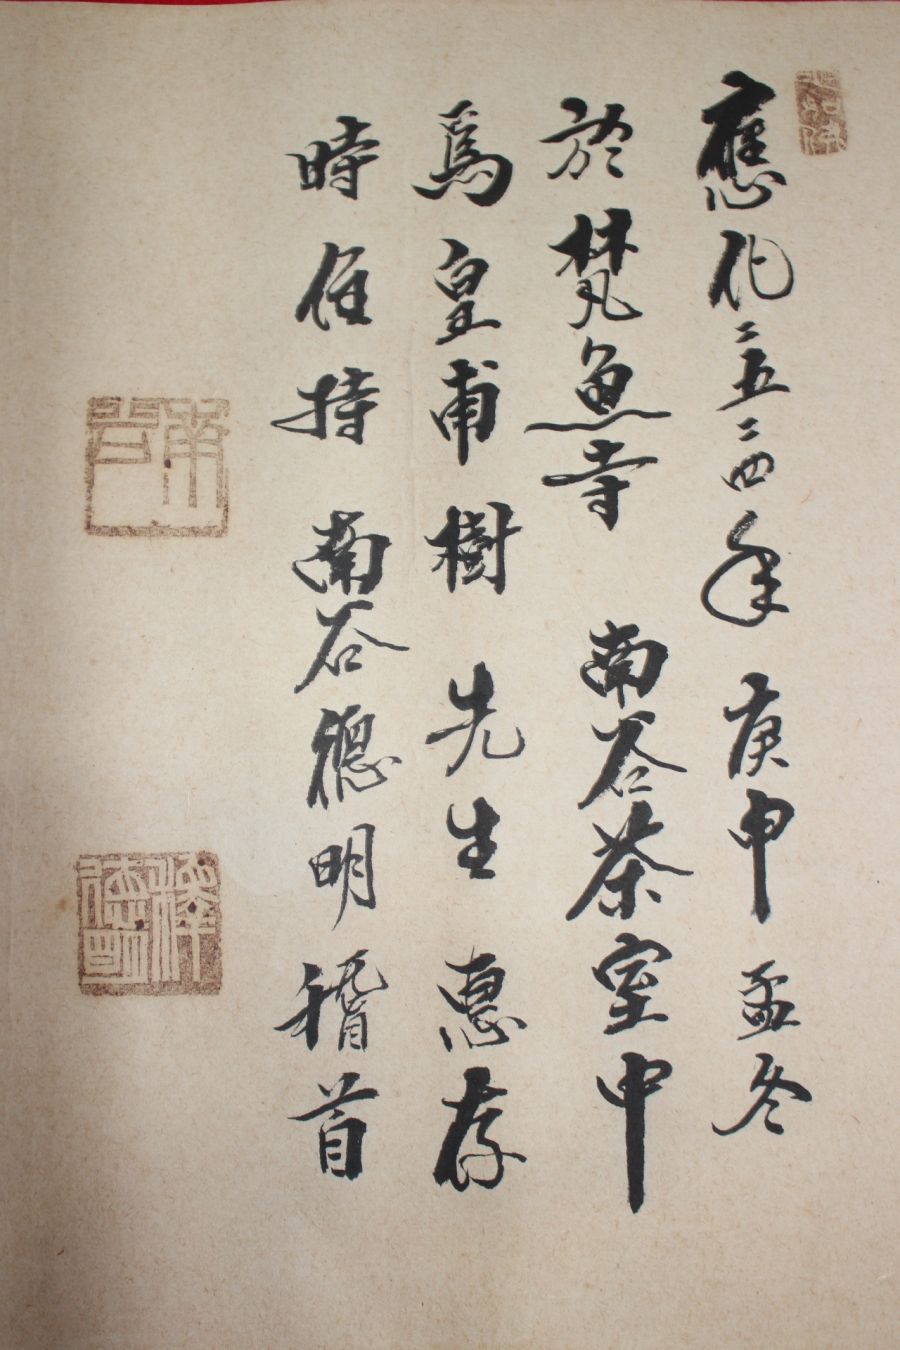 應化二五二四年 庚申 孟冬
於梵魚寺 南谷茶室中
爲皇甫樹 先生 惠存
時住持 南谷德明 稽首
南谷
釋德明